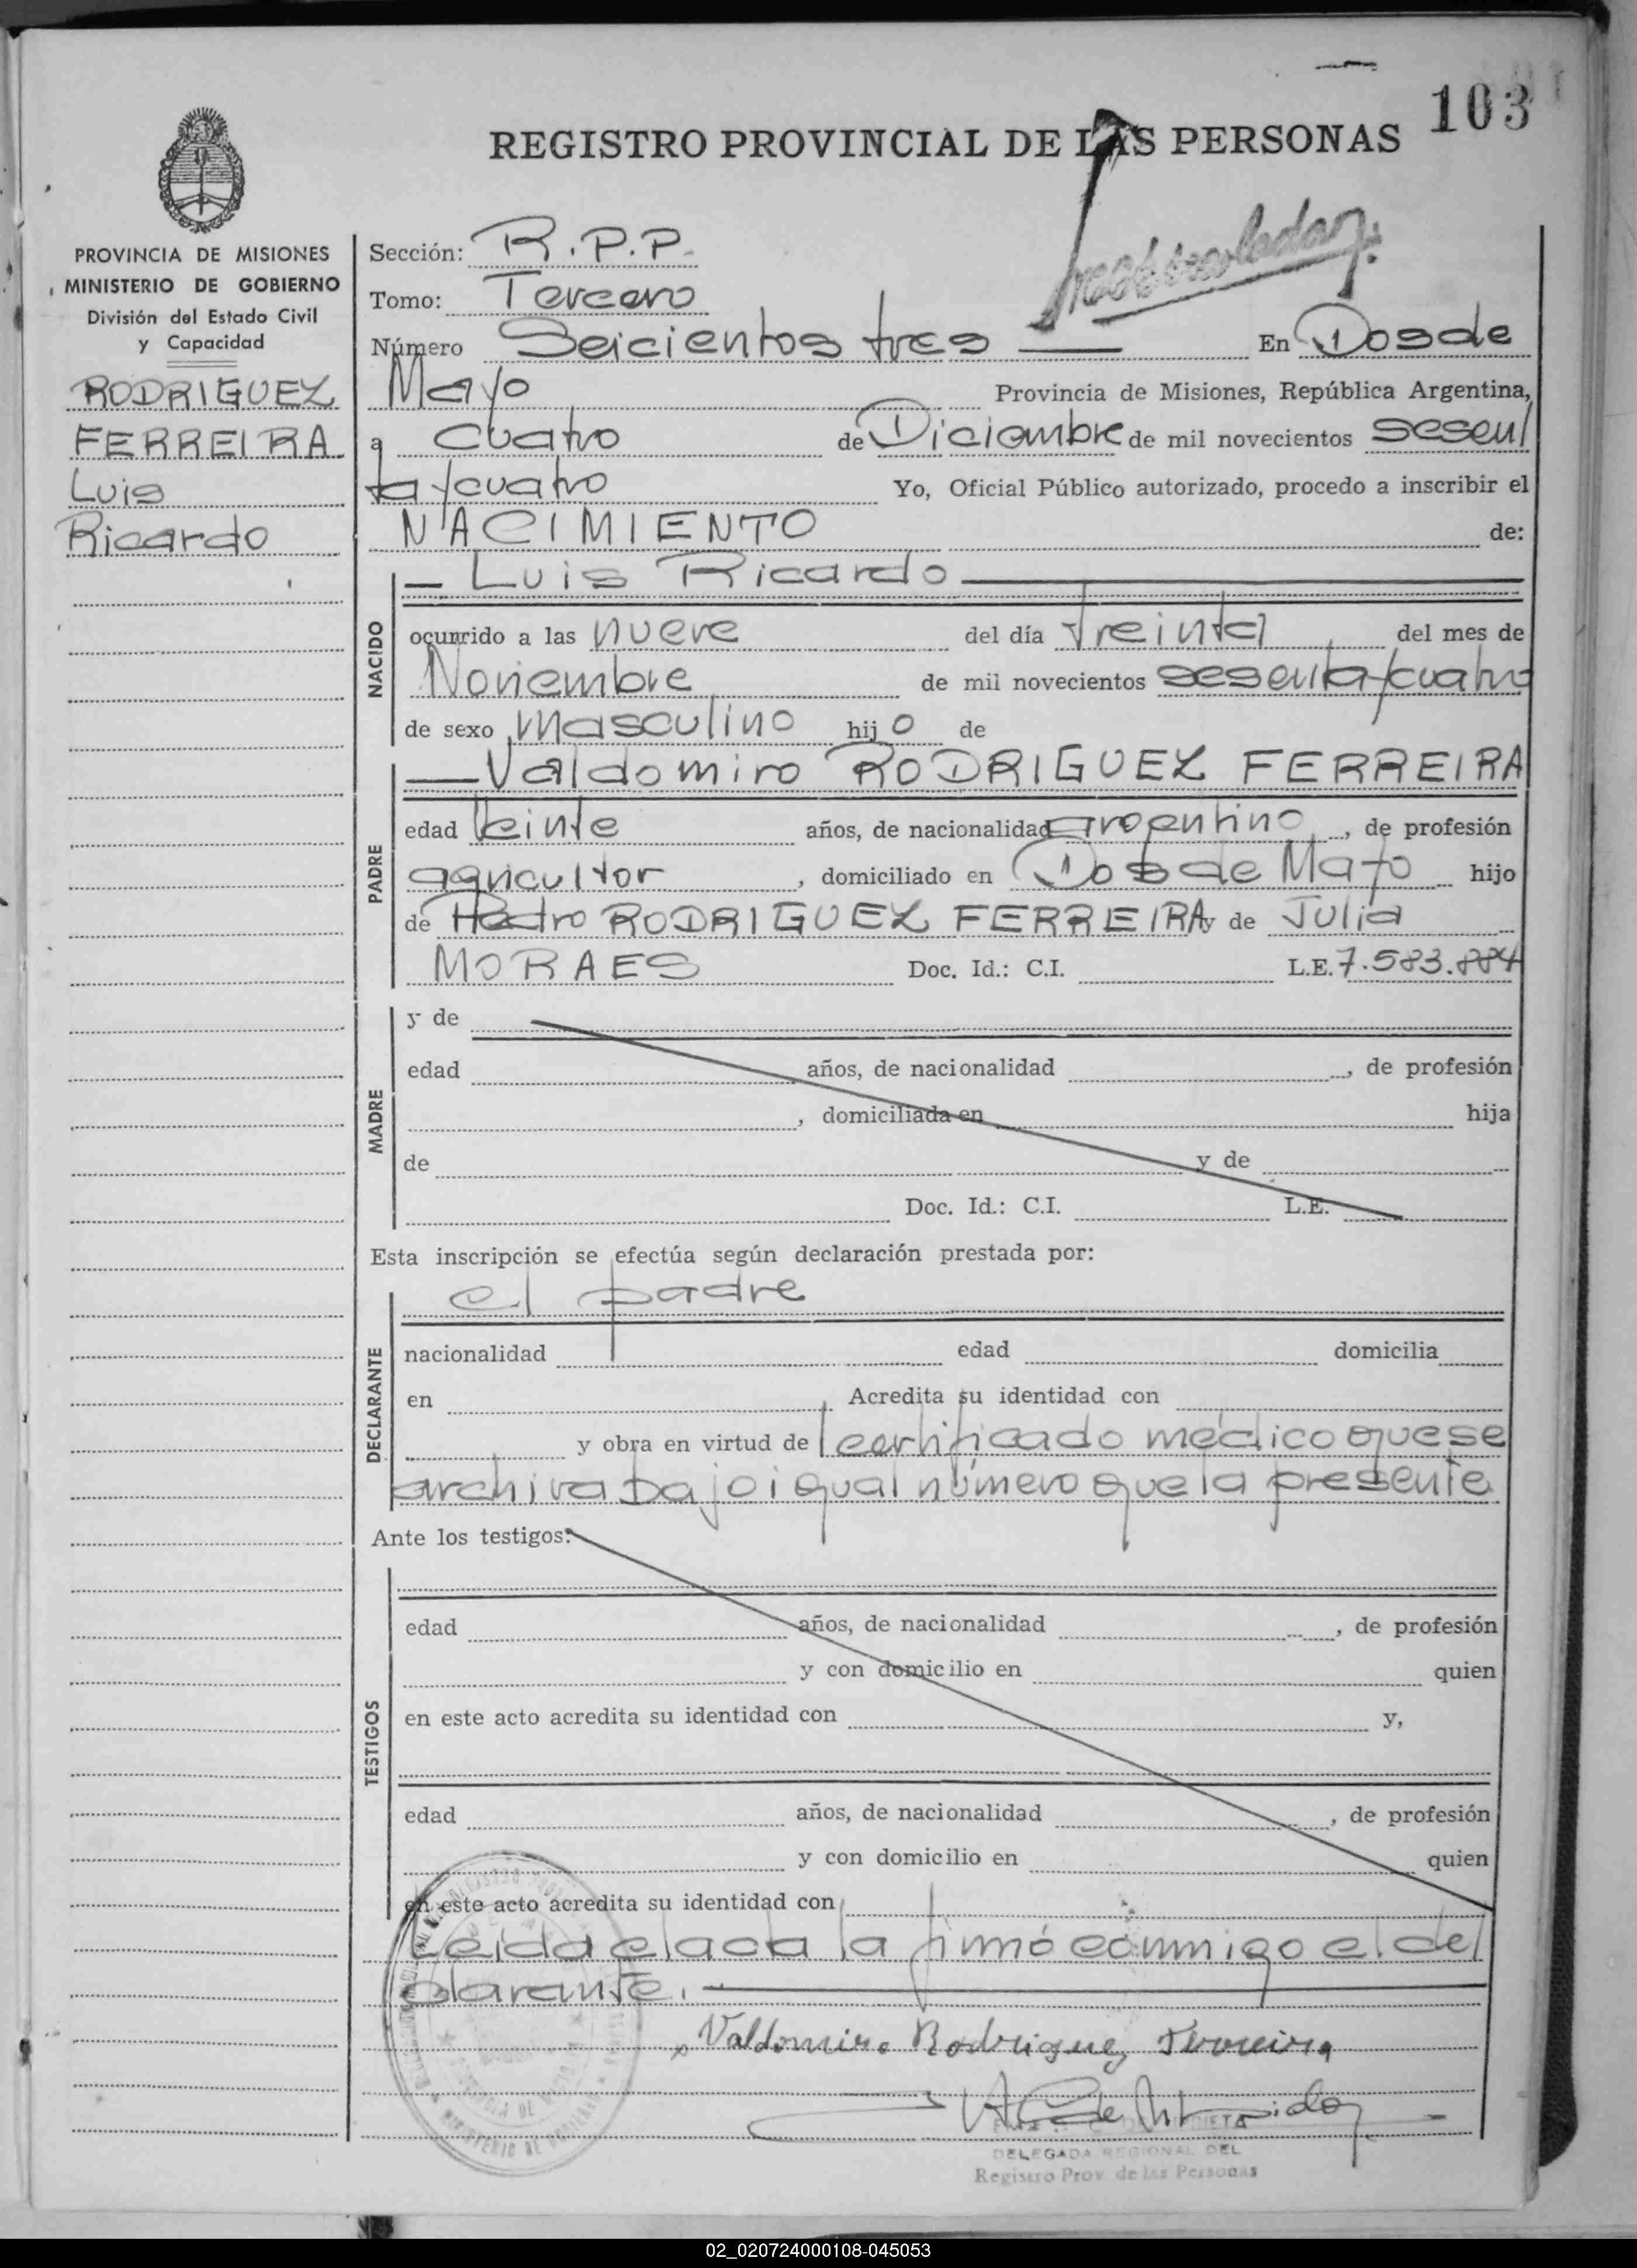 103
REGISTRO PROVINCIAL DE LAS PERSONAS
PROVINCIA DE MISIONES
MINISTERIO DE GOBIERNO
División del Estado Civil
y Capacidad
RODRIGUEZ
FERREIRA
Luis
Ricardo
Sección: R.P.P.
Tomo: Tercero
Número Seicientos tres En Dos de
Mayo Provincia de Misiones, República Argentina,
a cuatro de Diciembre de mil novecientos sesen
ta y cuatro Yo, Oficial Público autorizado, procedo a inscribir el
NACIMIENTO de:
NACIDO
Luis Ricardo
ocurrido a las nueve del día treinta del mes de
Noviembre de mil novecientos sesenta y cuatro
de sexo masculino hijo de
PADRE
Valdomiro RODRIGUEZ FERREIRA
edad veinte años, de nacionalidad argentino, de profesión
agricultor, domiciliado en Dos de Mayo hijo
de Pedro RODRIGUEZ FERREIRA y de Julia
MORAES Doc. Id.: C.I. L.E. 7.583.884
MADRE
y de
edad años, de nacionalidad , de profesión
, domiciliada en hija
de y de
Doc. Id.: C.I. L.E.
Esta inscripción se efectúa según declaración prestada por:
DECLARANTE
el padre
nacionalidad edad domicilia
en Acredita su identidad con
y obra en virtud de certificado médico que se
archiva bajo igual número que la presente
Ante los testigos:
TESTIGOS
edad años, de nacionalidad , de profesión
y con domicilio en quien
en este acto acredita su identidad con y,
edad años, de nacionalidad , de profesión
y con domicilio en quien
en este acto acredita su identidad con
Leida el acta la firmó conmigo el de
clarante.
x Valdomiro Rodriguez Ferreira
DELEGADA REGIONAL DEL
Registro Prov. de las Personas
02_020724000108-045053